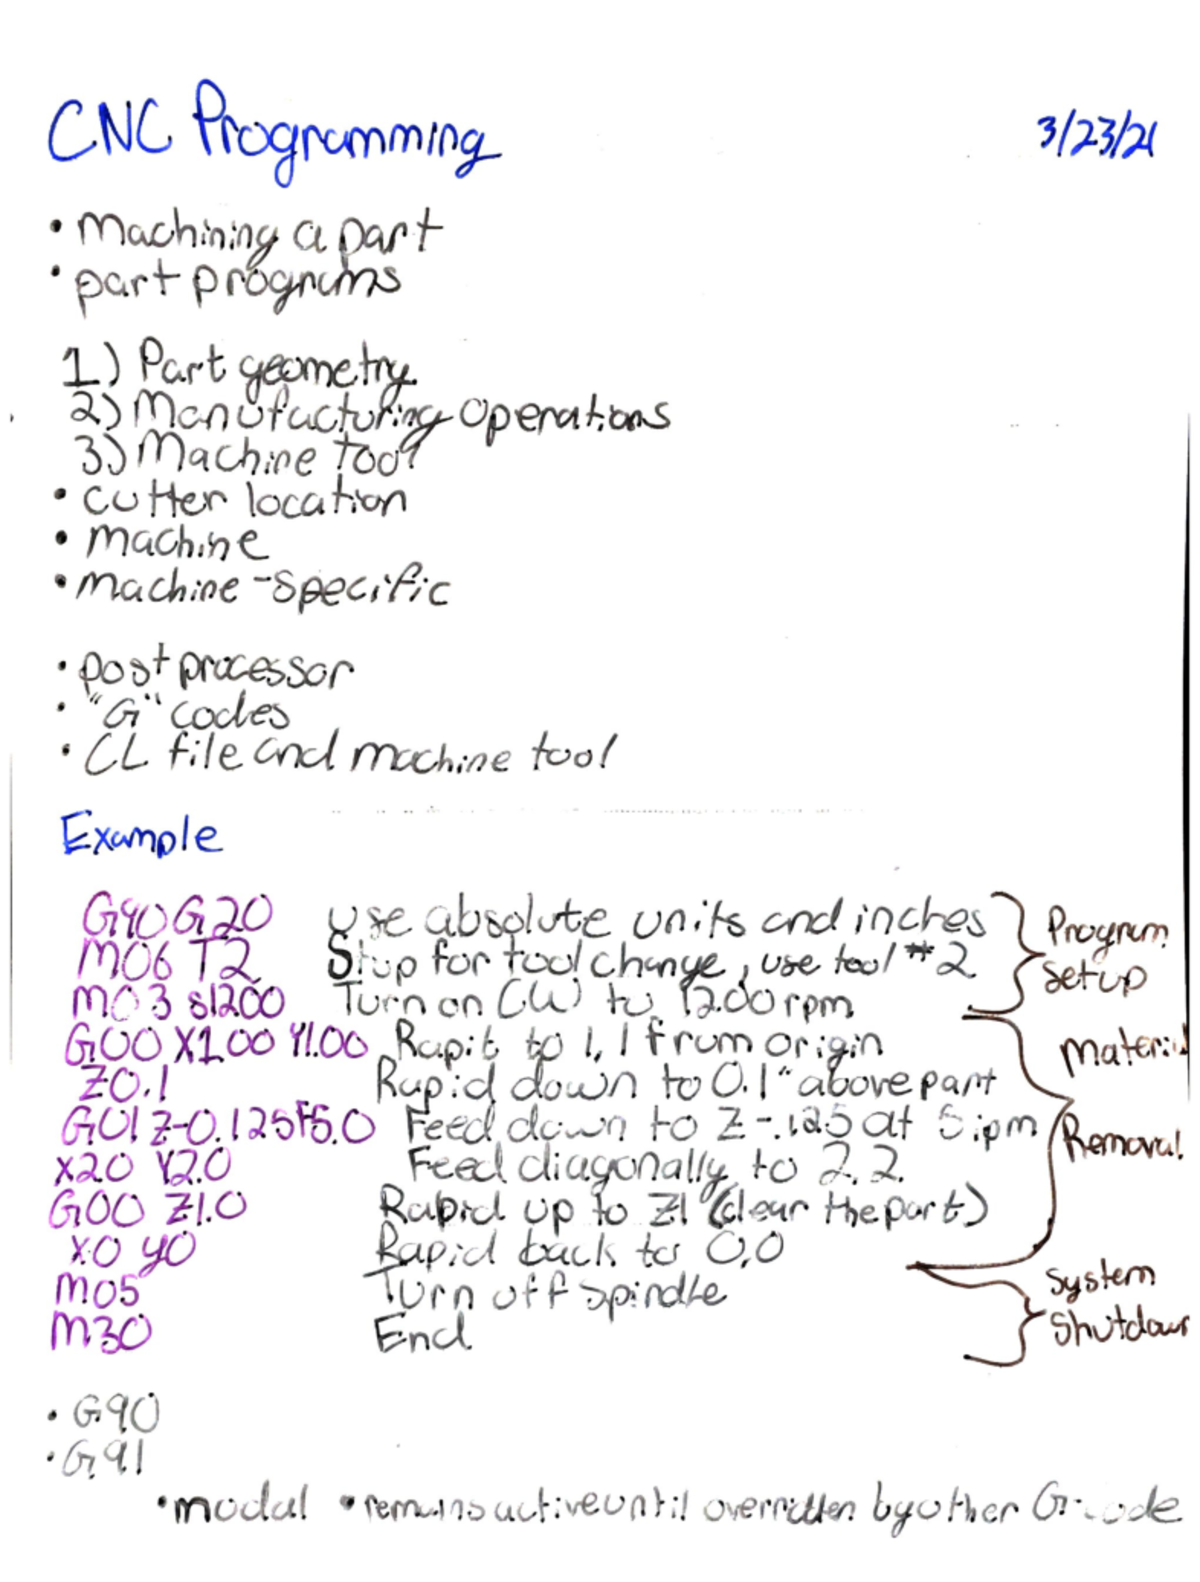 CNC Programming 3/23/21
• Machining a part
• part programs
1) Part geometry
2) Manufacturing Operations
3) Machine tool
• cutter location
• machine
• machine-specific
• post processor
• "G" codes
• CL file and machine tool
Example
G90 G20 use absolute units and inches
M06 T2 Stop for tool change, use tool #2
Program Setup
M03 S1200 Turn on CW to 1200 rpm
G00 X1.00 Y1.00 Rapit to 1, 1 from origin
Z0.1 Rapid down to 0.1" above part
G01 Z-0.125 F5.0 Feed down to Z-.125 at 5 ipm
X2.0 Y2.0 Feed diagonally to 2, 2
Material Removal
G00 Z1.0 Rapid up to Z1 (clear the part)
X0 Y0 Rapid back to 0,0
M05 Turn off spindle
M30 End
System Shutdown
• G90
• G91
• modal • remains active until overridden by other G-code